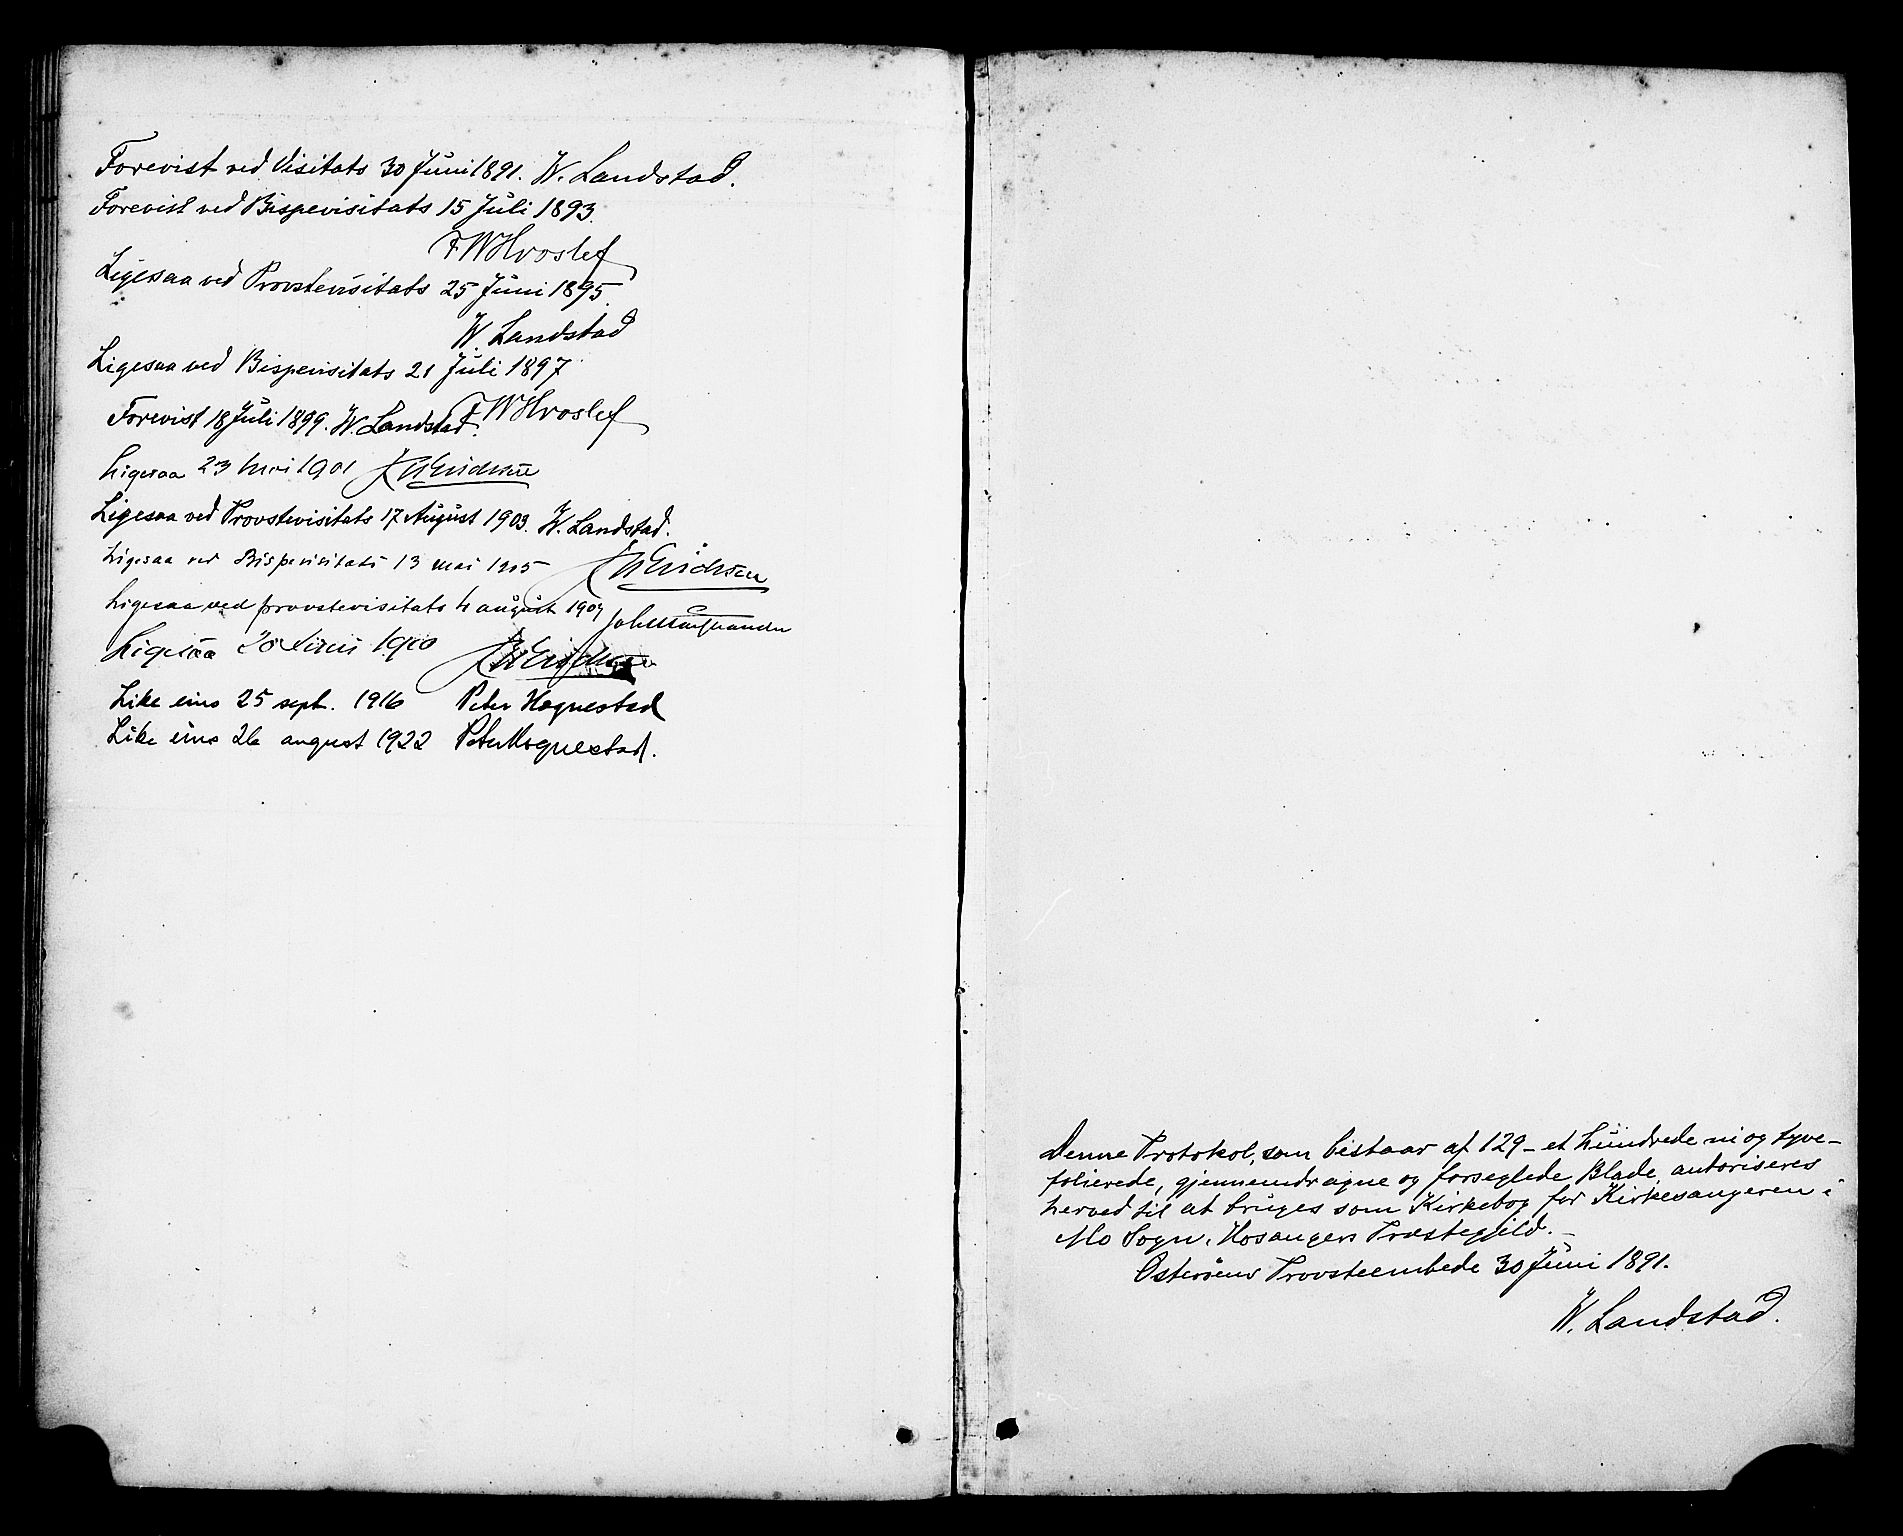 Forevist ved Visitats 30 Juni 1891. W. Landstad.
Forevist ved Bispevisitats 15 Juli 1893.
F W Hvoslef
Ligesaa ved Provstevisitats 25 Juni 1895.
W. Landstad
Ligesaa ved Bispevisitats 21 Juli 1897
F W Hvoslef
Forevist 18 Juli 1899. W. Landstad.
Ligesaa 23 Mai 1901 J W Erichsen
Ligesaa ved Provstevisitats 17 August 1903. W. Landstad.
Ligesaa ved Bispevisitats 13 mai 1905 J W Erichsen
Ligesaa ved provstevisitats 4 august 1907
Ligesaa 20 Juni 1910 J W Erichsen
Like eins 25 sept. 1916 Peter Hognestad
Like eins 26 august 1922 Peter Hognestad.
Denne Protokol, som bestaar af 129 - et hundrede ni og tyve -
folierede, gjennemdragne og forseglede Blade, autoriseres
herved til at bruges som Kirkebog for Kirkesangeren i
Mo Sogn, Hosangers Præstegjeld. -
Osterøens Provsteembede 30 Juni 1891.
W. Landstad.